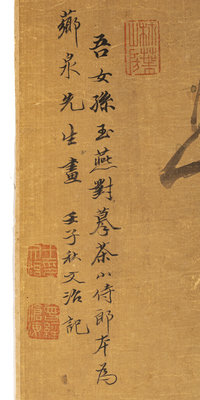 吾女孫玉燕對摹茶小侍郎本為
薌泉先生畫 壬子秋文治記